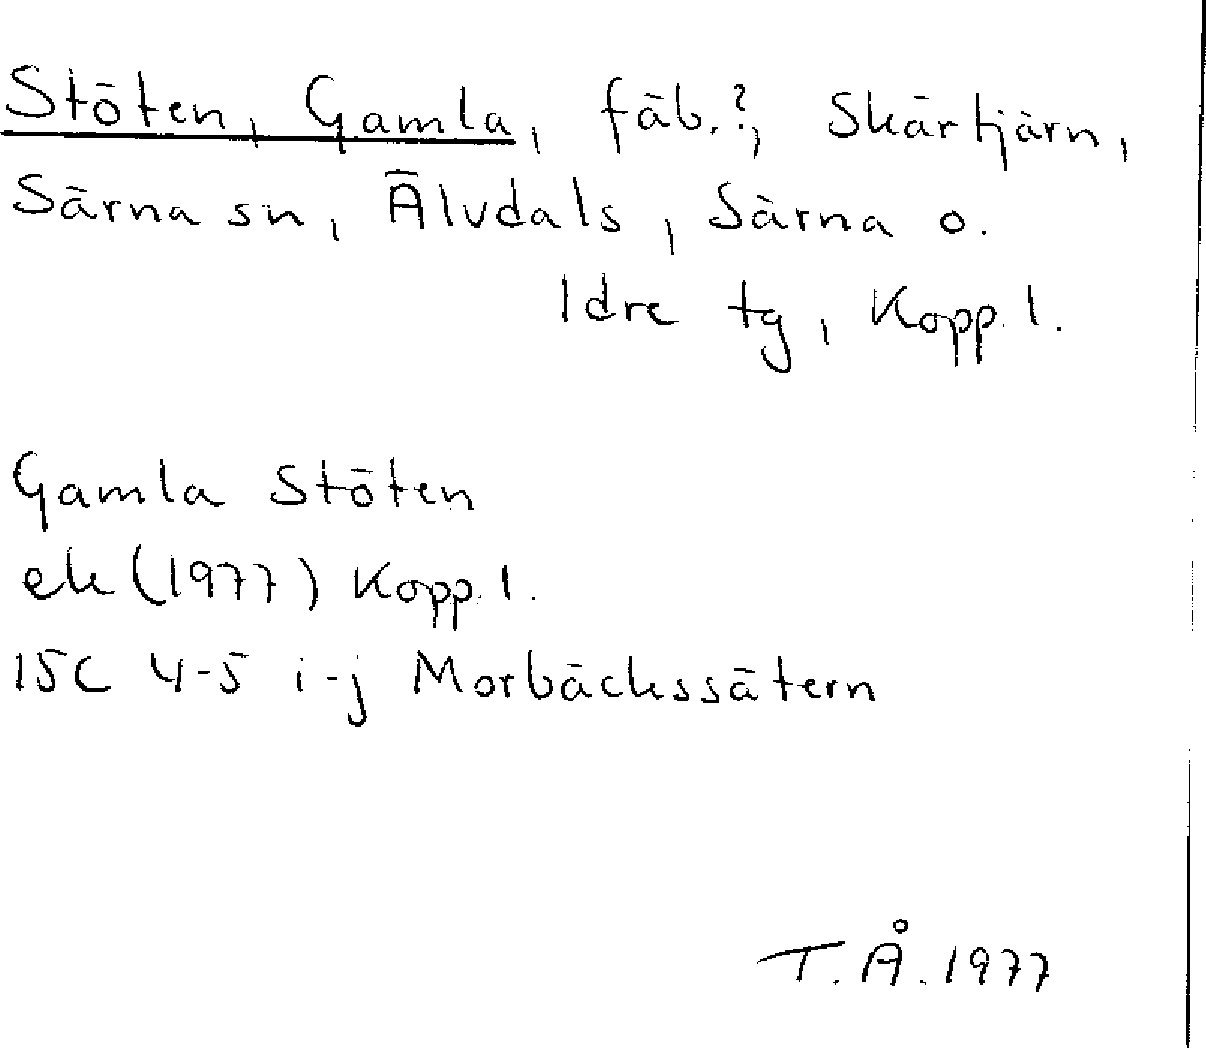 Stöten, Gamla, fäb.?, Skärtjärn,
Särna sn, Älvdals, Särna o.
Idre tg, Kopp. l.
Gamla Stöten
ek (1977) Kopp. l.
15C 4-5 i-j Morbäckssätern
T.Å. 1977